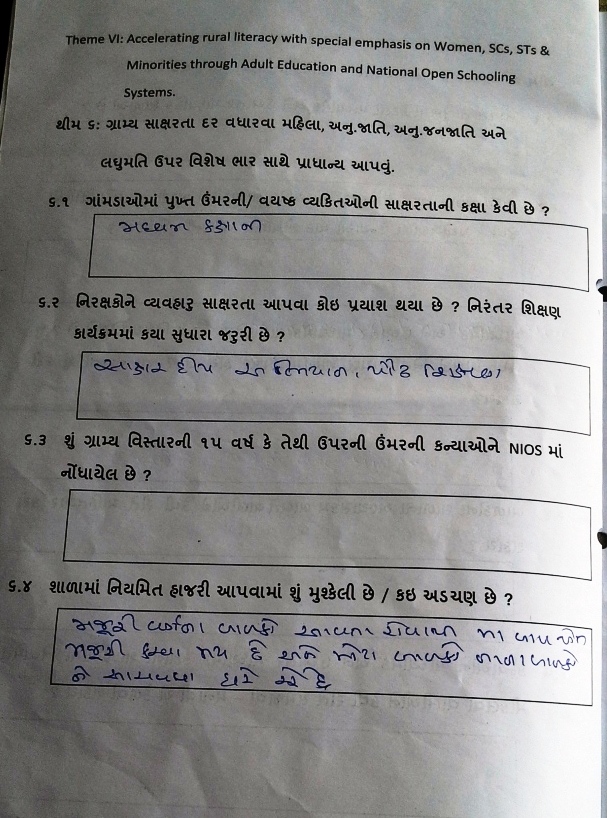 Theme VI: Accelerating rural literacy with special emphasis on Women, SCs, STs &
Minorities through Adult Education and National Open Schooling
Systems.
થીમ ૬: ગ્રામ્ય સાક્ષરતા દર વધારવા મહિલા, અનુ.જાતિ, અનુ.જનજાતિ અને
લઘુમતિ ઉપર વિશેષ ભાર સાથે પ્રાધાન્ય આપવું.
૬.૧ ગાંમડાઓમાં પુખ્ત ઉંમરની/ વયષ્ક વ્યકિતઓની સાક્ષરતાની કક્ષા કેવી છે ?
મધ્યમ કક્ષાની
૬.૨ નિરક્ષકોને વ્યવહારુ સાક્ષરતા આપવા કોઇ પ્રયાશ થયા છે ? નિરંતર શિક્ષણ
કાર્યક્રમમાં કયા સુધારા જરુરી છે ?
સાક્ષર દીપ અભિયાન, પ્રૌઢ શિક્ષણ
૬.૩ શું ગ્રામ્ય વિસ્તારની ૧૫ વર્ષ કે તેથી ઉપરની ઉંમરની કન્યાઓને NIOS માં
નોંધાયેલ છે ?
૬.૪ શાળામાં નિયમિત હાજરી આપવામાં શું મુશ્કેલી છે / કઇ અડચણ છે ?
મજૂરી વર્ગના બાળકો મા બાપ
મજૂરી કરવા જાય છે અને મોટા બાળકો નાના બાળકો
ને સાચવવા ઘરે રહે છે